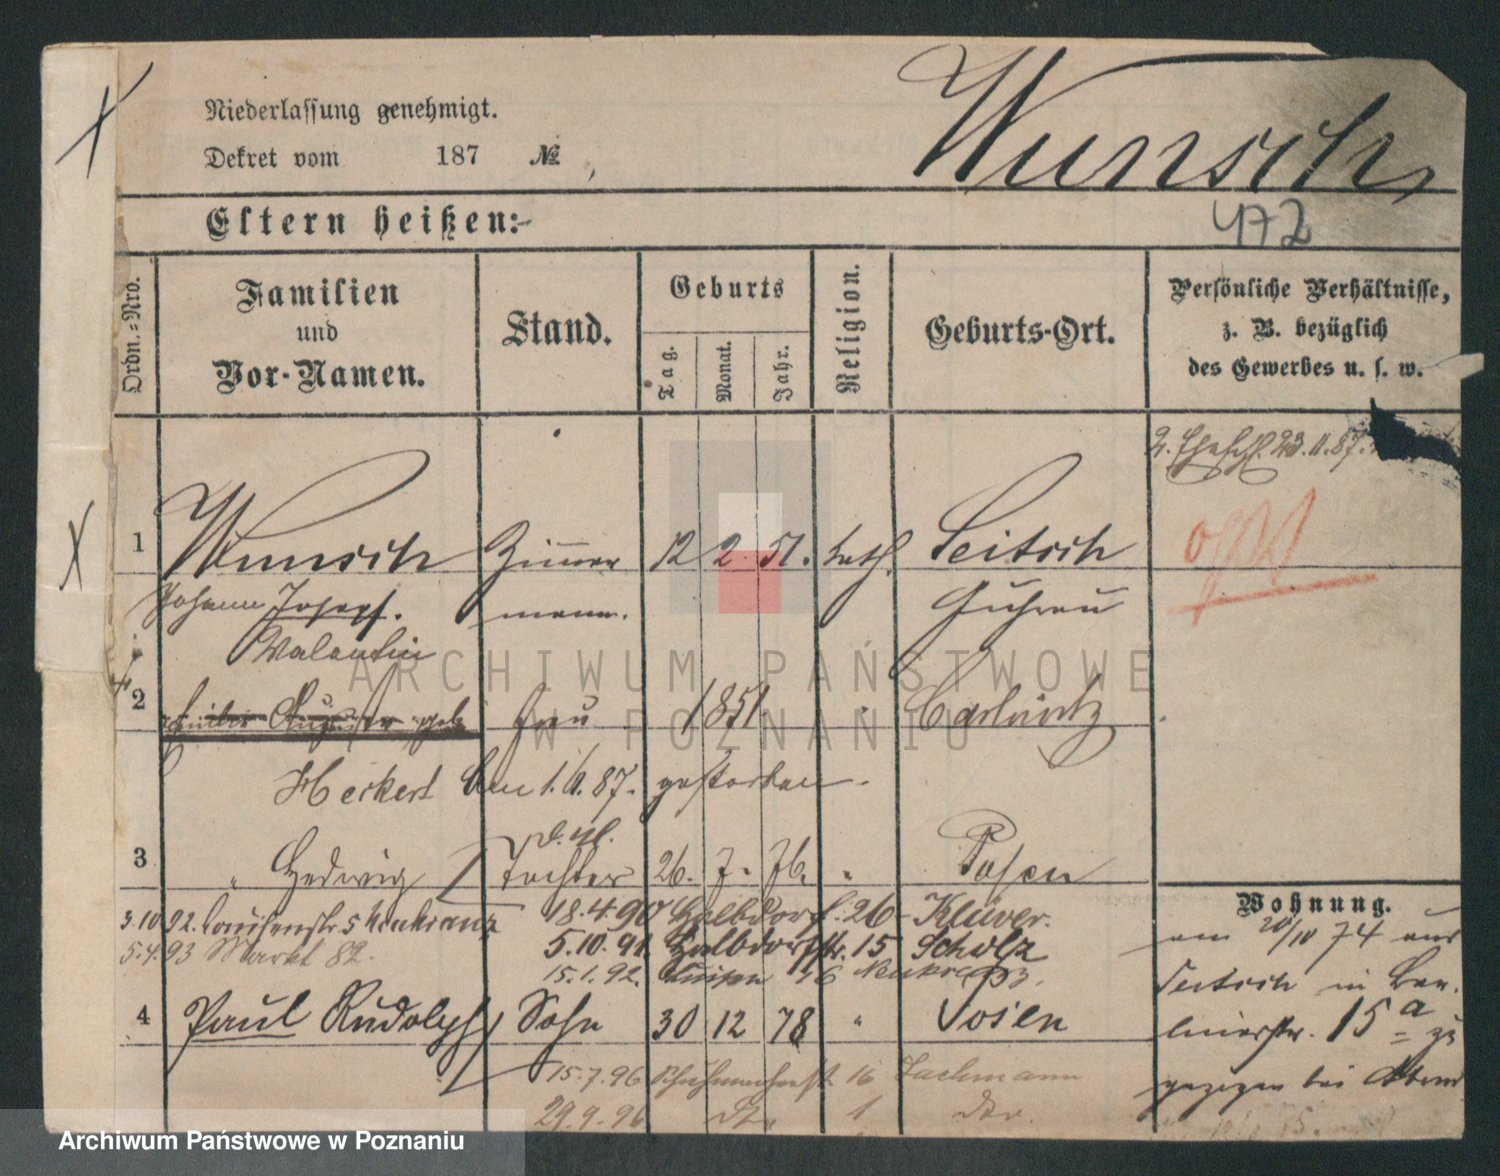 Wunsch
Niederlassung genehmigt.
Dekret vom 187 №
Eltern heißen:
472
Ordn.-Nro.
Familien und Vor-Namen.
Stand.
Geburts
Tag.
Monat.
Jahr.
Religion.
Geburts-Ort.
Persönliche Verhältnisse,
z. B. bezüglich
des Gewerbes u. s. w.
2. Eheschl. 23.11.87.
1 Wunsch Zimmer 12 2. 51. kath. Seitsch
Johann Josef. mann. Guhrau
Valentin
2 Auguste geb. Frau 1851
Heckert den 1. 87. gestorben.
3 " Hedwig Tochter 26. 7. 76. " Posen
Wohnung.
3.10.92. Louisenstr. 5 18.4.90 Halbdorfstr. 26 Klüver.
5.4.93 Markt 82. 5.10.91. Halbdorfstr. 15 Scholz
15.1.92. 16
am 20/10 74 aus
Seitsch in
4 Paul Rudolph Sohn 30 12 78 " Posen
15 a zu
15.7.96 16 Lachmann
gezogen bei
29.9.96 do. 1 do.
ARCHIWUM PAŃSTWOWE
W POZNANIU
Archiwum Państwowe w Poznaniu